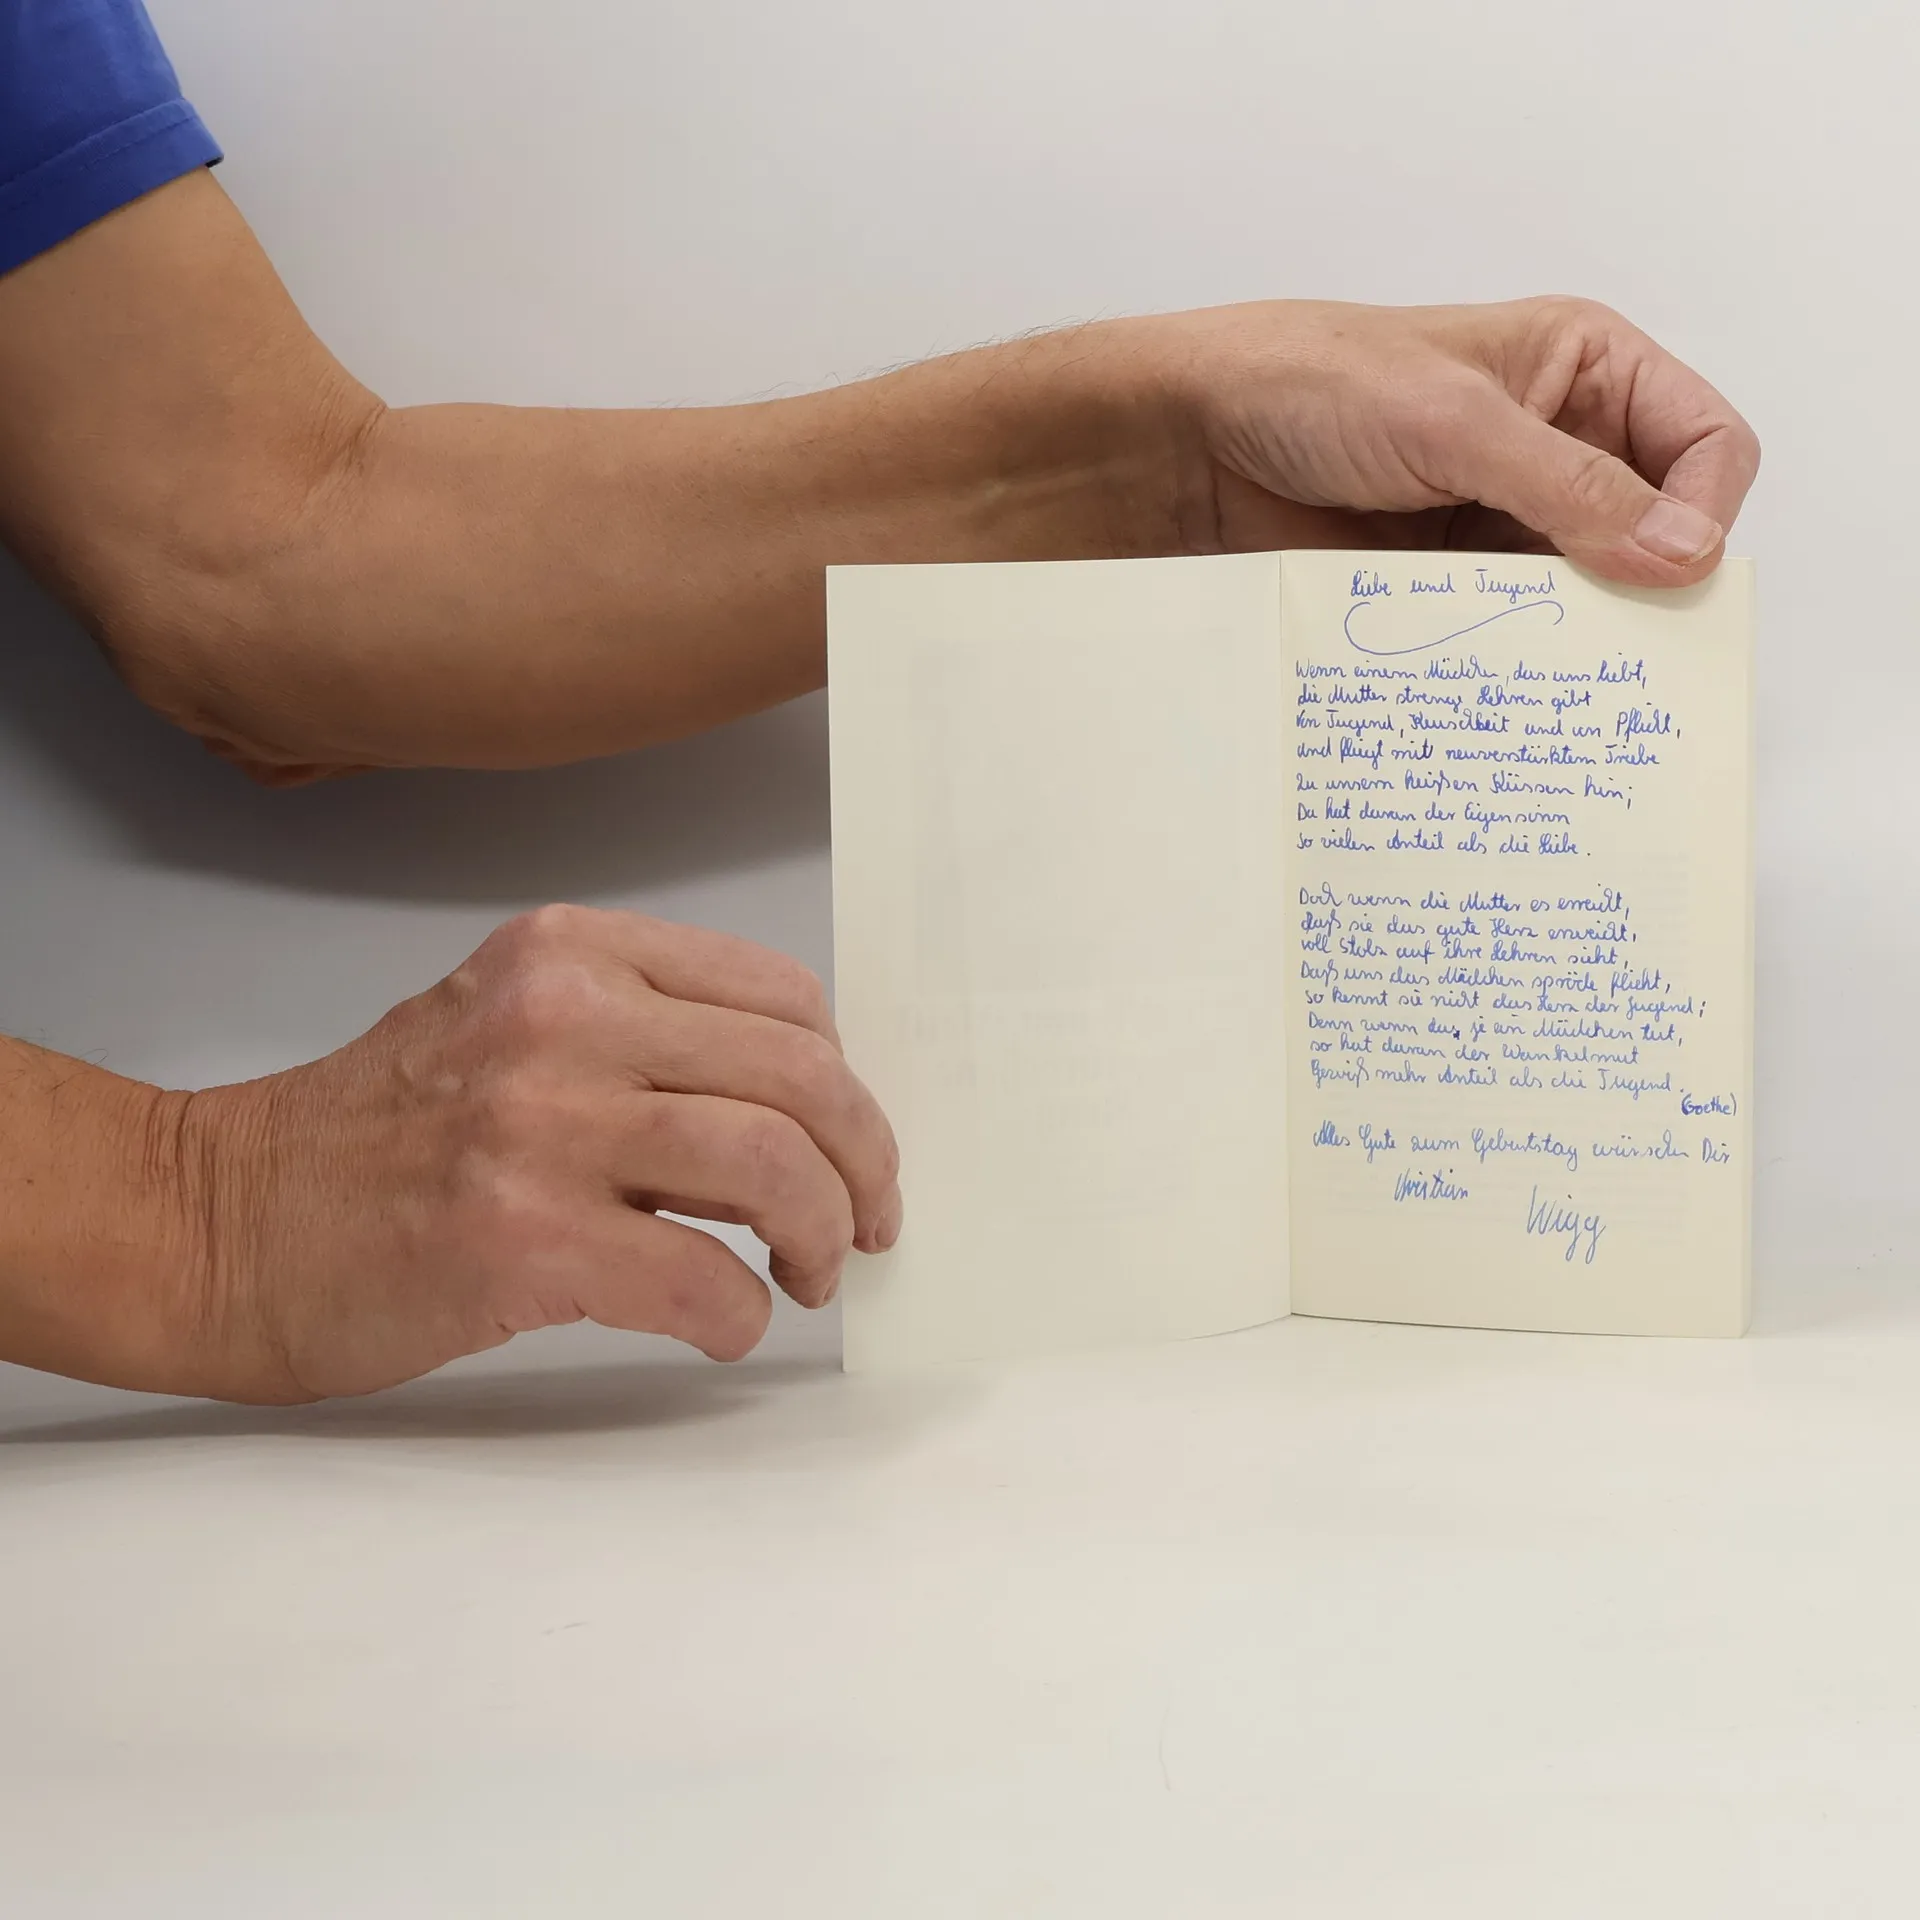 Liebe und Tugend
Wenn einem Mädchen, das uns liebt,
die Mutter strenge Lehren gibt
Von Tugend, Keuschheit und von Pflicht,
und fliegt mit neuverstärktem Triebe
Zu unsern heißen Küssen hin;
Da hat daran der Eigensinn
So vielen Anteil als die Liebe.
Doch wenn die Mutter es erreicht,
daß sie das gute Herz erweicht,
voll Stolz auf ihre Lehren sieht,
Daß uns das Mädchen spröde flieht,
so kennt sie nicht das Herz der Jugend;
Denn wenn das je ein Mädchen tut,
so hat daran der Wankelmut
Gewiß mehr Anteil als die Tugend.
(Goethe)
Alles Gute zum Geburtstag wünschen Dir
Christian Wigg